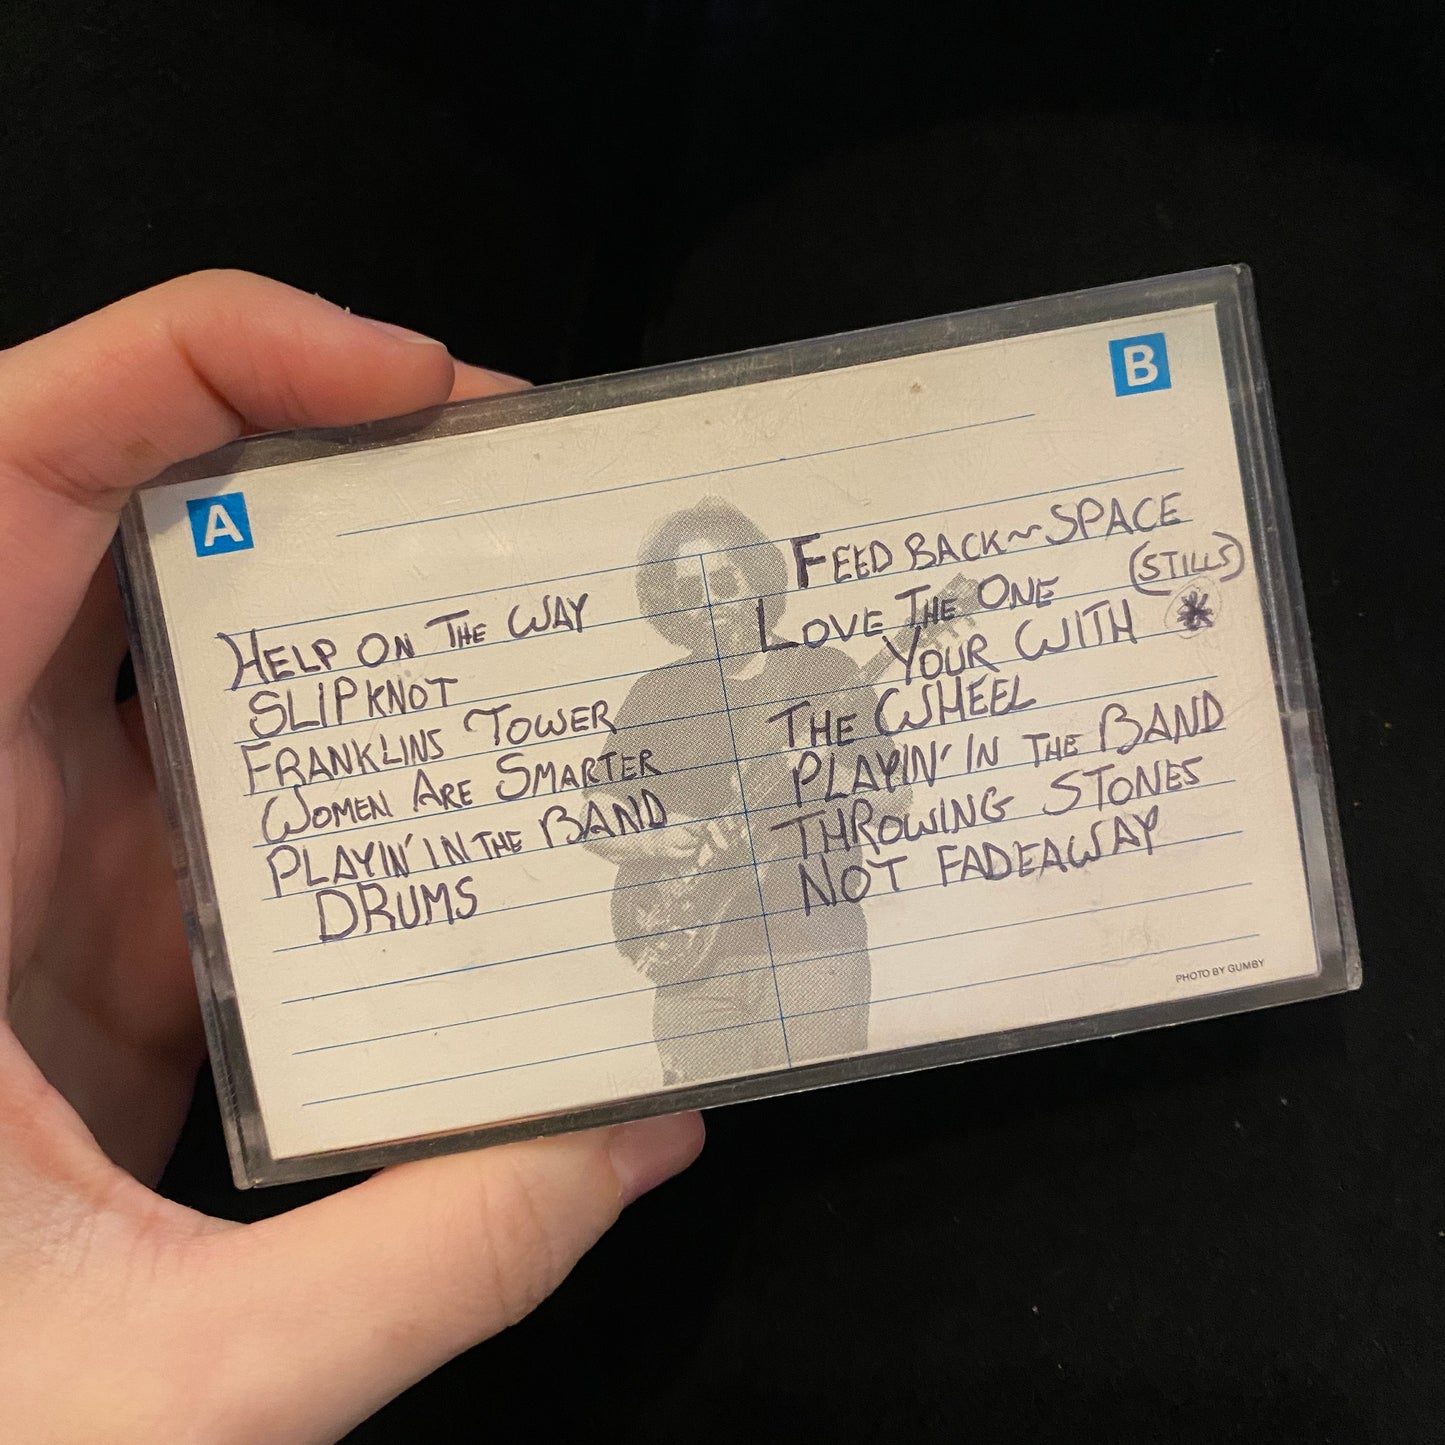 A
HELP ON THE WAY
SLIPKNOT
FRANKLINS TOWER
WOMEN ARE SMARTER
PLAYIN' IN THE BAND
DRUMS
B
FEED BACK~SPACE
LOVE THE ONE (STILLS)
YOUR WITH *
THE WHEEL
PLAYIN' IN THE BAND
THROWING STONES
NOT FADEAWAY
PHOTO BY GUMBY